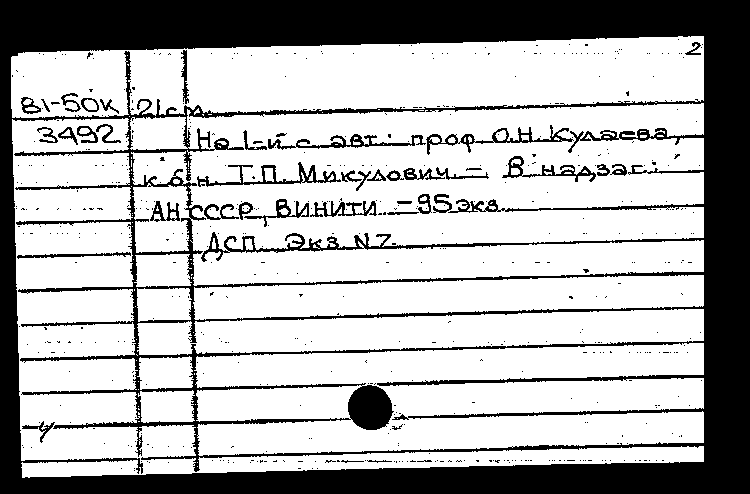 2
81-50к 21см.
3492 На 1-й с авт.: проф О.Н. Кулаева,
к.б.н. Т.П. Микулович. – В надзаг.:
АН СССР, ВИНИТИ – 95экз.
ДСП. Экз N7.